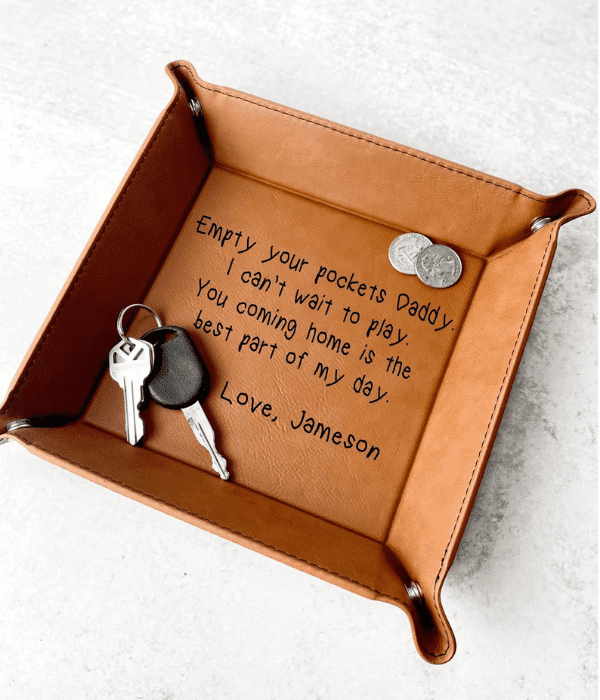 Empty your pockets Daddy.
I can't wait to play.
You coming home is the
best part of my day.
Love, Jameson